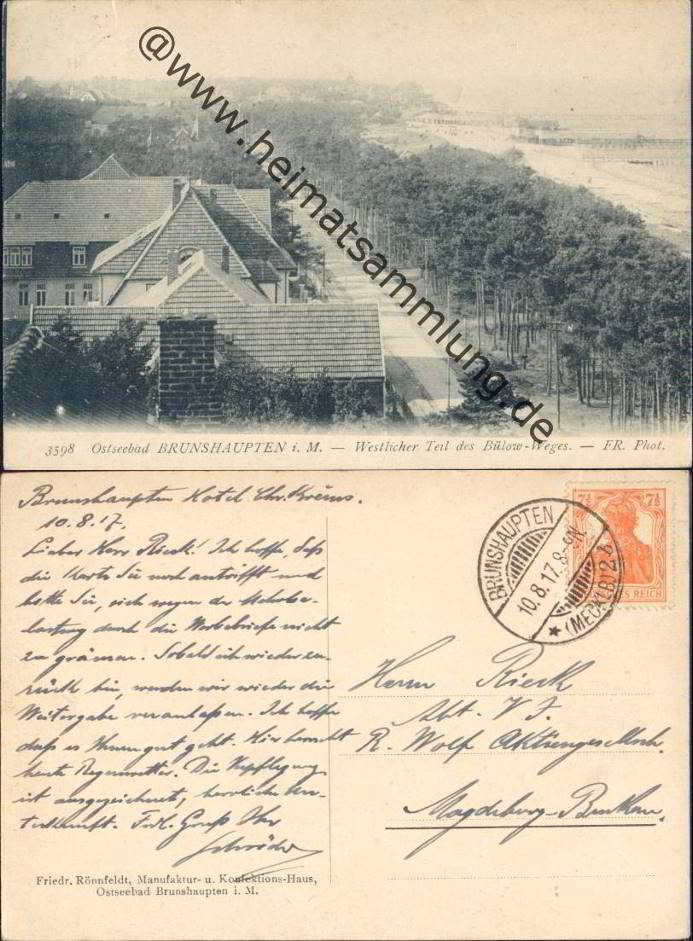 @www.heimatsammlung.de
3598 Ostseebad BRUNSHAUPTEN i. M. — Westlicher Teil des Bülow-Weges. — FR. Phot.
Brunshaupten Hotel Chr.
10.8.17.
Lieber Herr Rieck! Ich hoffe, daß
die Karte Sie noch antrifft und
bitte Sie, sich wegen der Mehrbe-
lastung durch die Werbebriefe nicht
zu grämen. Sobald ich wieder zu-
rück bin, werden wir wieder die
Weitergabe veranlassen. Ich hoffe
daß es Ihnen gut geht. Hier herrscht
heute Regenwetter. Die Verpflegung
ist ausgezeichnet, herrliche Un-
terkunft. Frdl. Gruß Ihr
Schröder
Friedr. Rönnfeldt, Manufaktur- u. Konfektions-Haus,
Ostseebad Brunshaupten i. M.
BRUNSHAUPTEN
10.8.17. 8-9N.
* (MECKLB) b
7½ 7½
DEUTSCHES REICH
Herrn Rieck
Abt. V J.
R. Wolf Aktiengesellsch.
Magdeburg-Buckau.